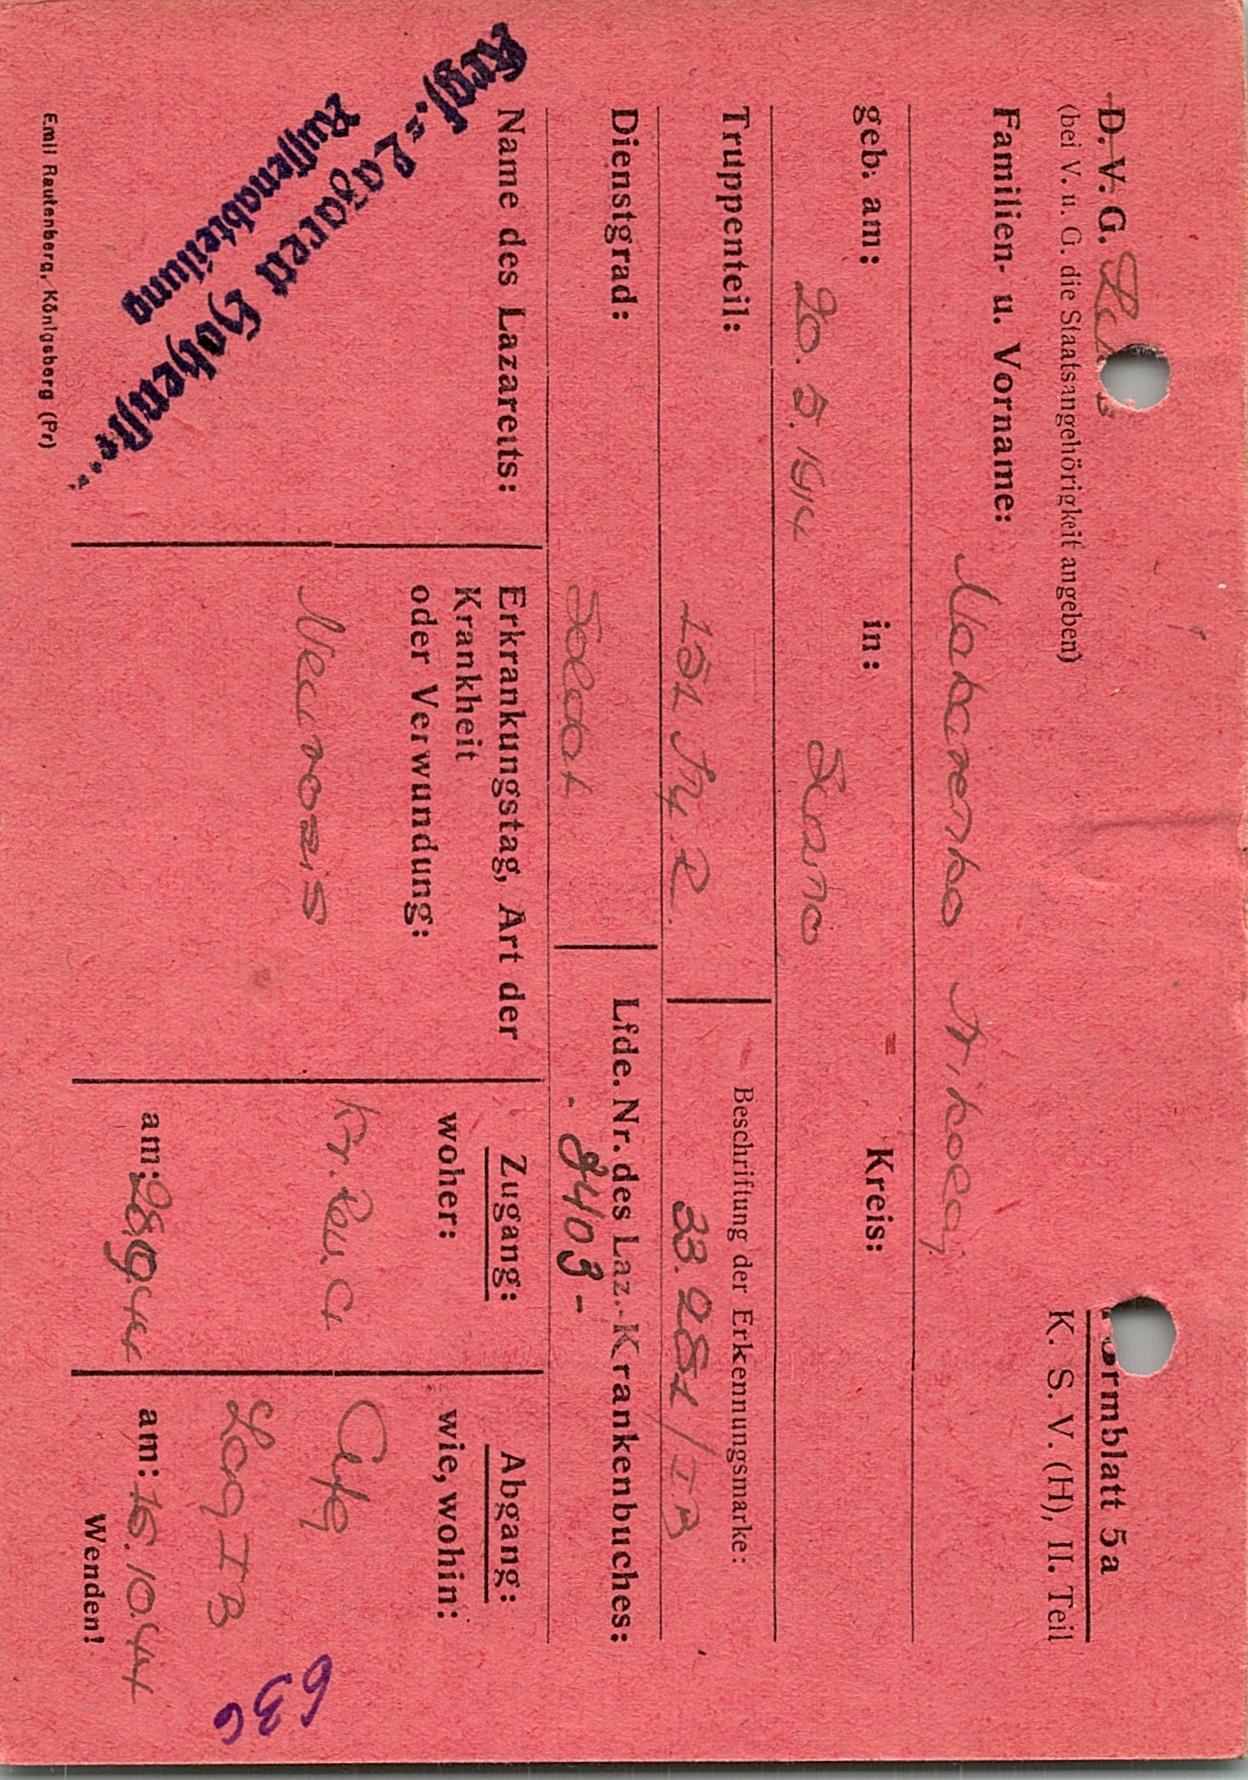 D. V. G.
(bei V. u. G. die Staatsangehörigkeit angeben)
Formblatt 5a
K. S. V. (H), II. Teil
Familien- u. Vorname: Makarenko Nikolaj
geb. am: 20. 5. 1914 in: Kreis:
Truppenteil: 151 Beschriftung der Erkennungsmarke:
33.281/IB
Dienstgrad: Soldat Lfde. Nr. des Laz.-Krankenbuches:
8403-
Name des Lazaretts:
Krgf.-Lazarett Hohenst
Russenabteilung
Erkrankungstag, Art der
Krankheit
oder Verwundung:
Neurosis
Zugang:
woher:
am: 28.9.44
Abgang:
wie, wohin:
Lag IB
am: 16.10.44
Wenden!
636
Emil Rautenberg, Königsberg (Pr)